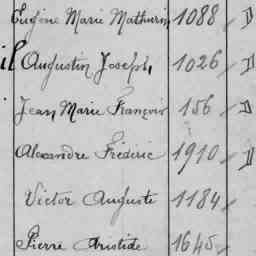 Eugène Marie Mathurin 1088 D
il Augustin Joseph 1026 D
Jean Marie François 156 D
Alexandre Fréderic 1910 D
Victor Auguste 1184
Pierre Aristide 1645